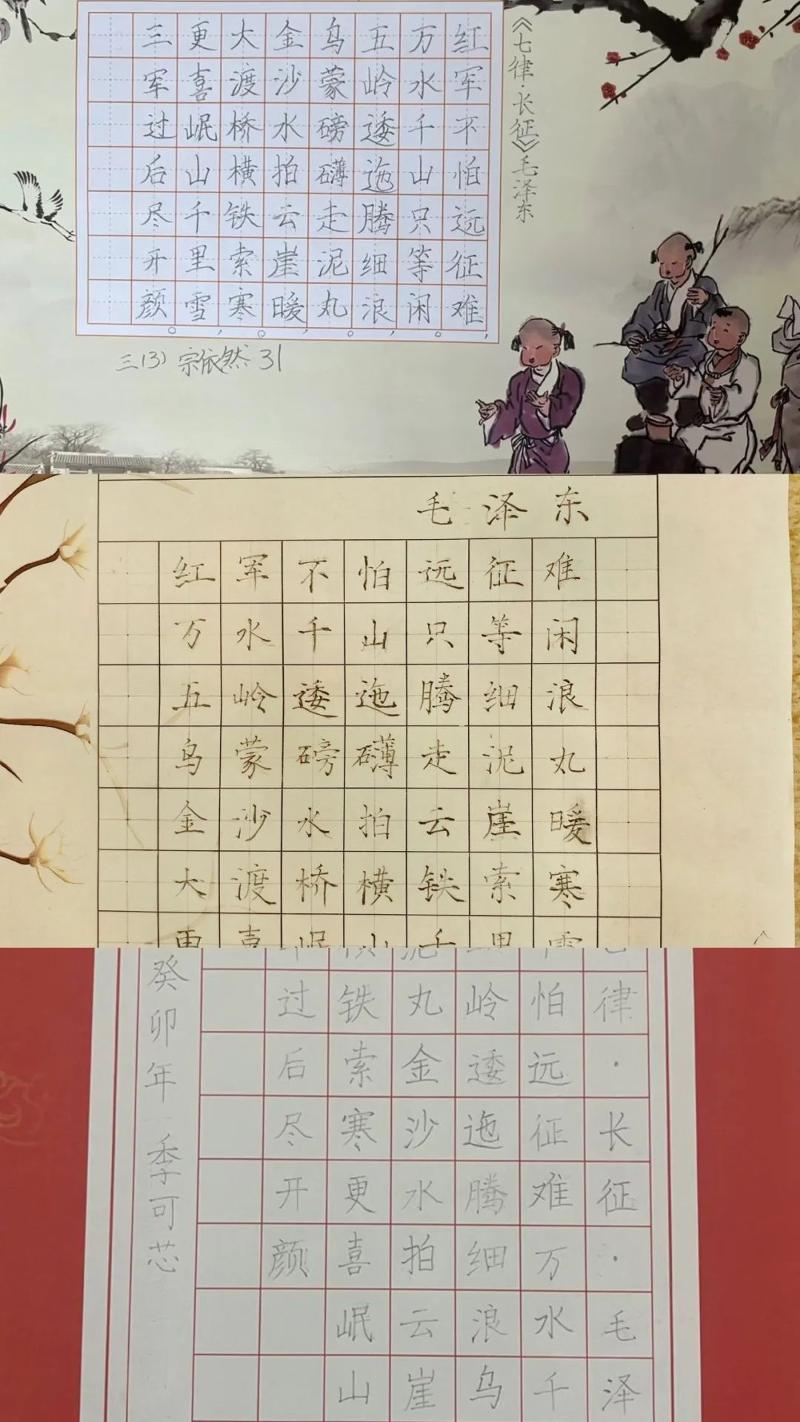 《七律·长征》毛泽东
红军不怕远征难,
万水千山只等闲。
五岭逶迤腾细浪,
乌蒙磅礴走泥丸。
金沙水拍云崖暖,
大渡桥横铁索寒。
更喜岷山千里雪,
三军过后尽开颜。
三(3) 宗依然 31
毛泽东
红军不怕远征难
万水千山只等闲
五岭逶迤腾细浪
乌蒙磅礴走泥丸
金沙水拍云崖暖
大渡桥横铁索寒
更喜岷山千里雪
律·长征·毛泽
怕远征难万水千
岭逶迤腾细浪乌
丸金沙水拍云崖
铁索寒更喜岷山
过后尽开颜
癸卯年 季可芯